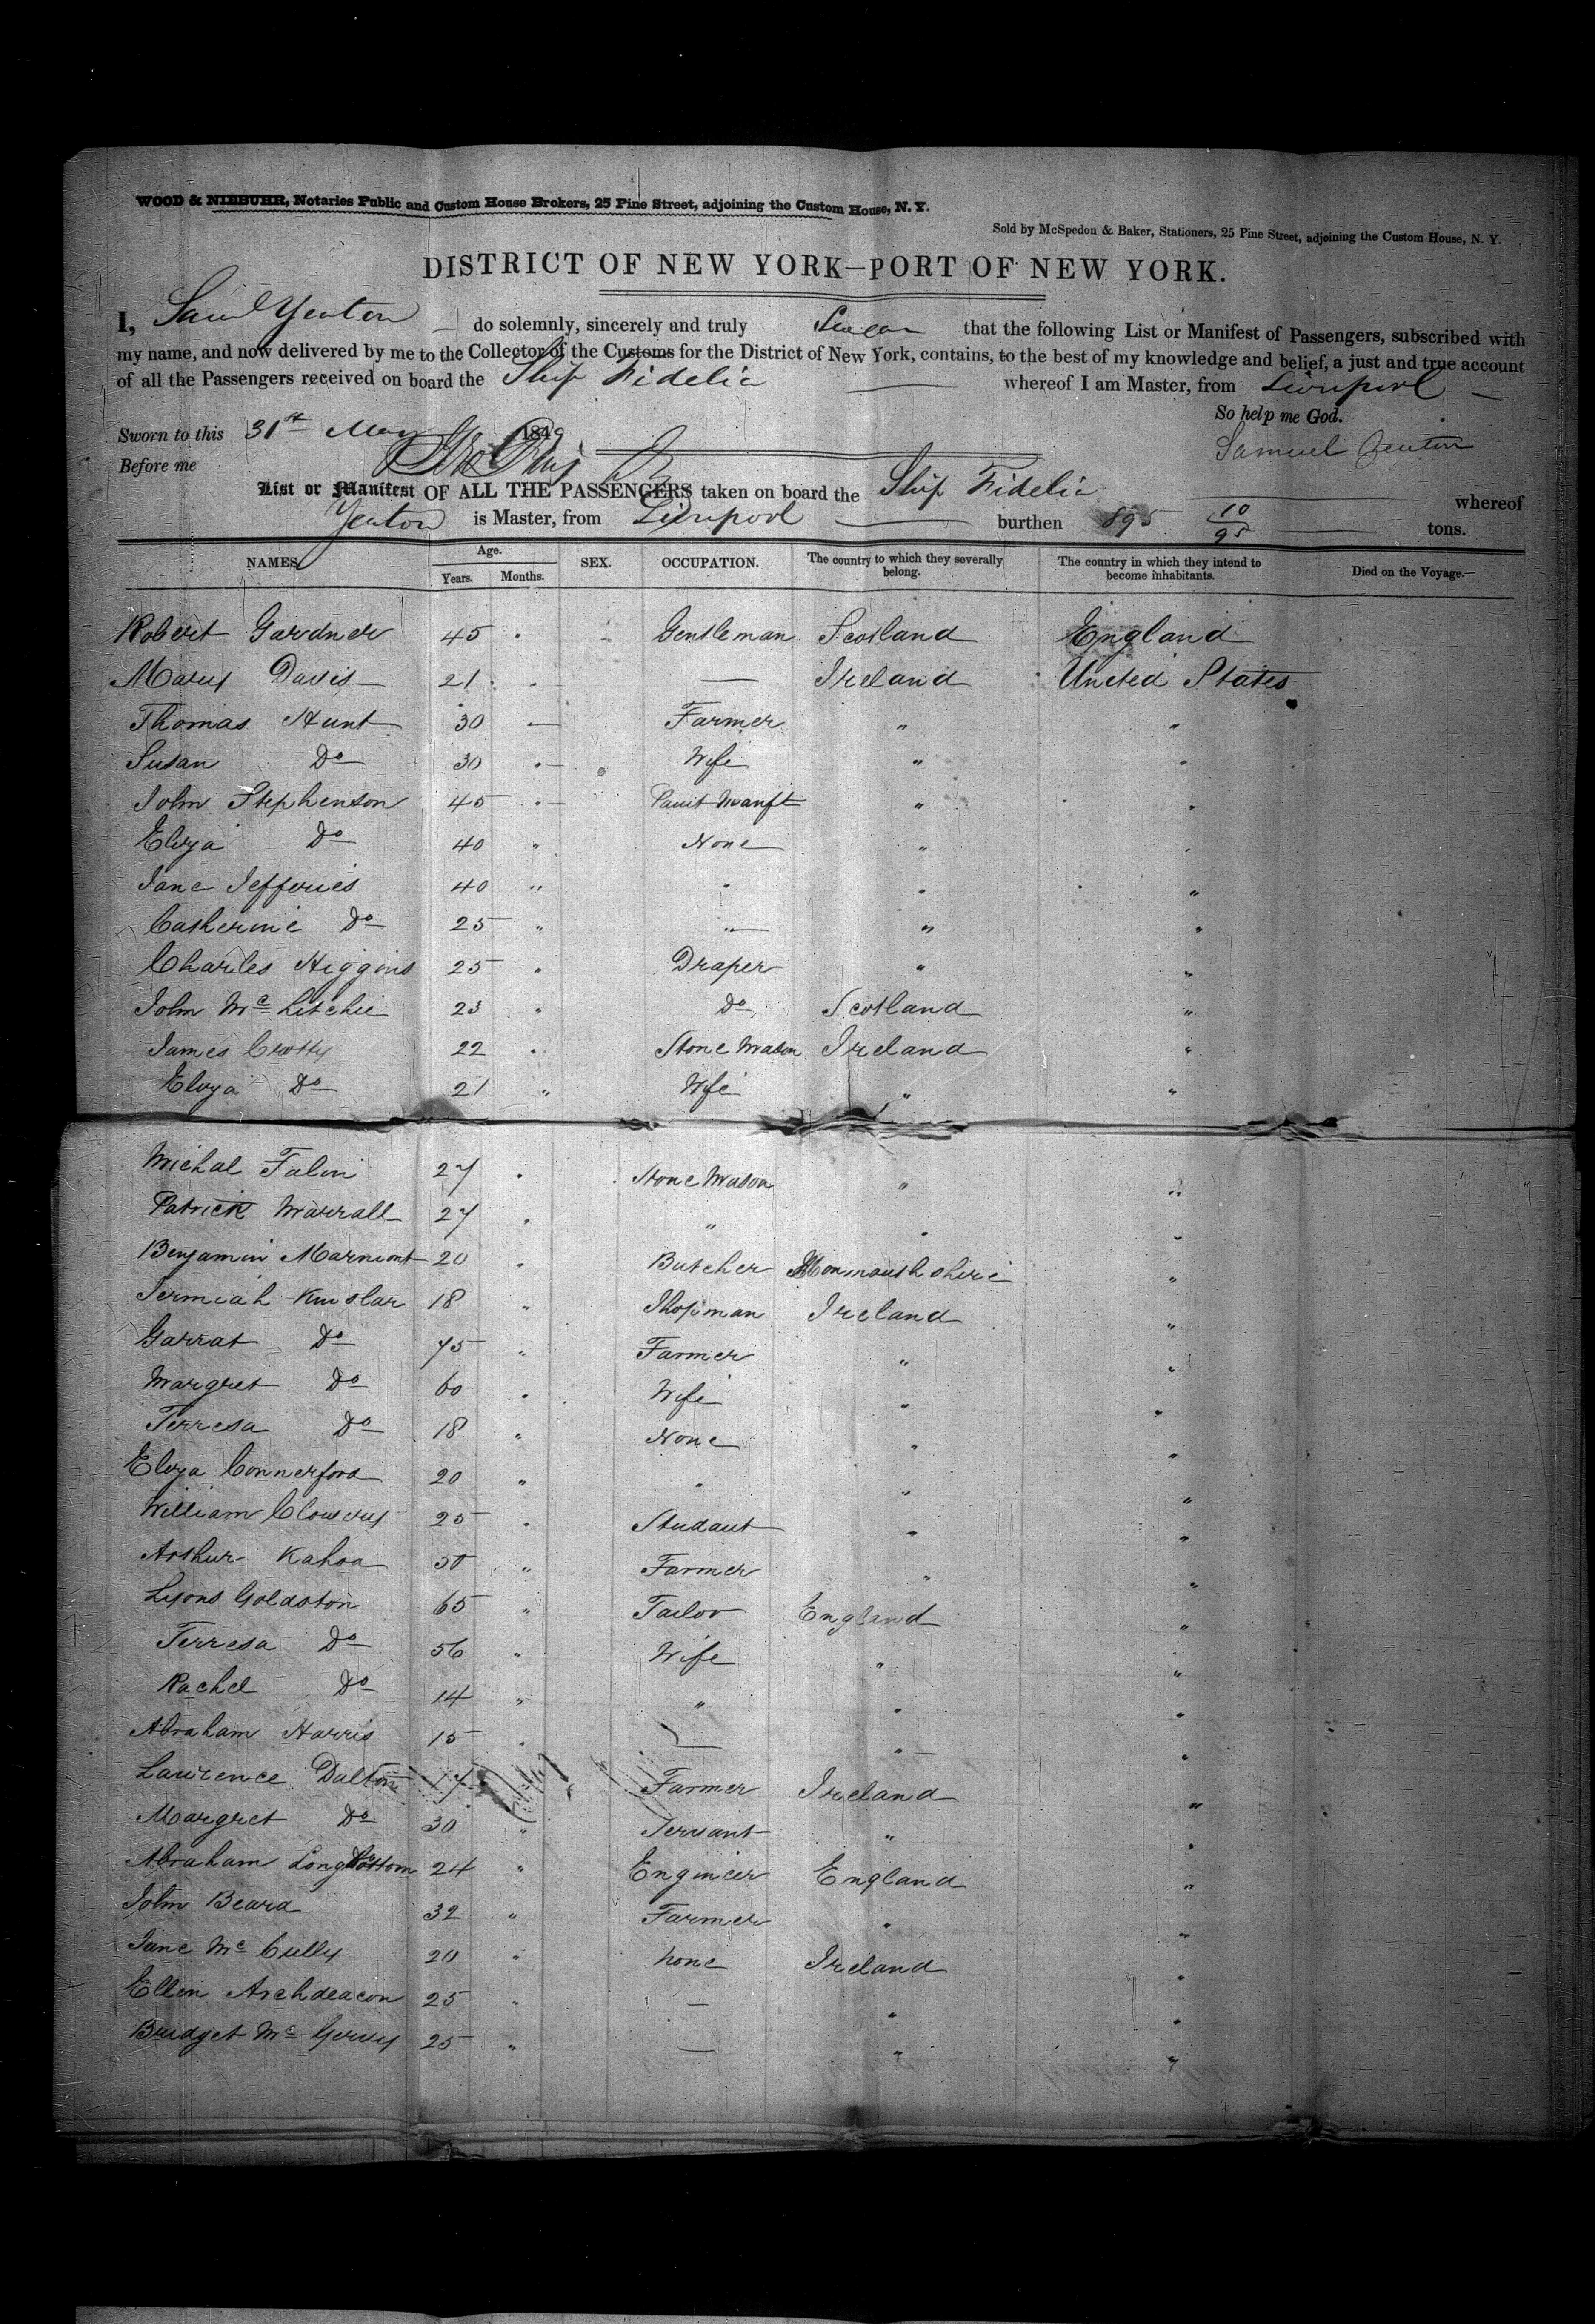 WOOD & NIEBUHR, Notaries Public and Custom House Brokers, 25 Pine Street, adjoining the Custom House, N. Y.
Sold by McSpedon & Baker, Stationers, 25 Pine Street, adjoining the Custom House, N. Y.
DISTRICT OF NEW YORK—PORT OF NEW YORK.
I, Saml Yeaton do solemnly, sincerely and truly Swear that the following List or Manifest of Passengers, subscribed with
my name, and now delivered by me to the Collector of the Customs for the District of New York, contains, to the best of my knowledge and belief, a just and true account
of all the Passengers received on board the Ship Fidelia whereof I am Master, from Liverpool
So help me God.
Sworn to this 31st May 1849
Samuel Yeaton
Before me
List or Manifest OF ALL THE PASSENGERS taken on board the Ship Fidelia whereof
Yeaton is Master, from Liverpool burthen 895 10/95 tons.
NAMES Age. Years. Months. SEX. OCCUPATION. The country to which they severally belong. The country in which they intend to become inhabitants. Died on the Voyage.—
Robert Gardner 45 Gentleman Scotland England
Mary Davis 21 — Ireland United States
Thomas Hunt 30 — Farmer " "
Susan Do 30 Wife " "
John Stephenson 45 " "
Elyza Do 40 " None " "
Jane Jefferies 40 " " " "
Catherine Do 25 " — " "
Charles Higgins 25 " Draper " "
John Mc Litchie 23 " Do Scotland "
James Crotty 22 " Stone Mason Ireland "
Elyza Do 21 " Wife " "
Michal Falin 27 " Stone Mason " "
Patrick Marrall 27 " " " "
Benjamin Marmont 20 " Butcher Monmouthshire "
Jermiah 18 " Shopman Ireland "
Garrat Do 75 " Farmer " "
Margret Do 60 " Wife " "
Terresa Do 18 " None " "
Elyza Connerford 20 " " " "
William 25 " Studant " "
Arthur Kahoa 50 " Farmer " "
Lyons Goldston 65 " Tailor England "
Terresa Do 56 " Wife " "
Rachel Do 14 " " " "
Abraham Harris 15 " — " "
Lawrence Dalton 17 Farmer Ireland "
Margret Do 30 " Servant " "
Abraham Longbottom 24 " Engineer England "
John Beard 32 " Farmer " "
Jane Mc Cully 20 " none Ireland "
Ellen Archdeacon 25 " — " "
Bridget Mc 25 " — " "